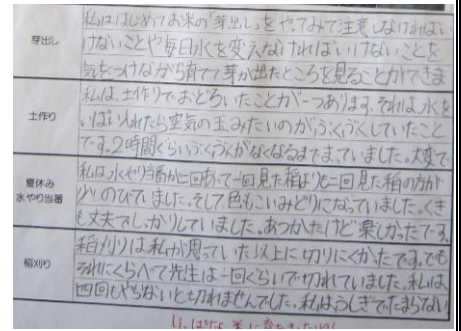 芽出し
私は、はじめてお米の「芽出し」をやってみて注意しなければい
けないことや毎日水を変えなければいけないことを
気をつけながら育てて芽が出たところを見ることができま
土作り
私は、土作りでおどろいたことが一つあります。それは、水を
いっぱい入れたら空気の玉みたいのがぶくぶくしていたこと
です。2時間くらいぶくぶくがなくなるまでまっていました。大変で
夏休み
水やり当番
私は、水やり当番が二回あって一回見た稲よりも二回見た稲の方が
少しのびていました。そして色もこいみどりになっていました。くき
も丈夫でしっかりしていました。あつかったけど楽しかったです。
稲刈り
稲刈りは私が思っていた以上に切りにくかったです。でも
それにくらべて先生は一回くらいで切れていました。私は
四回もやらないと切れませんでした。私はうしぎでたまらない